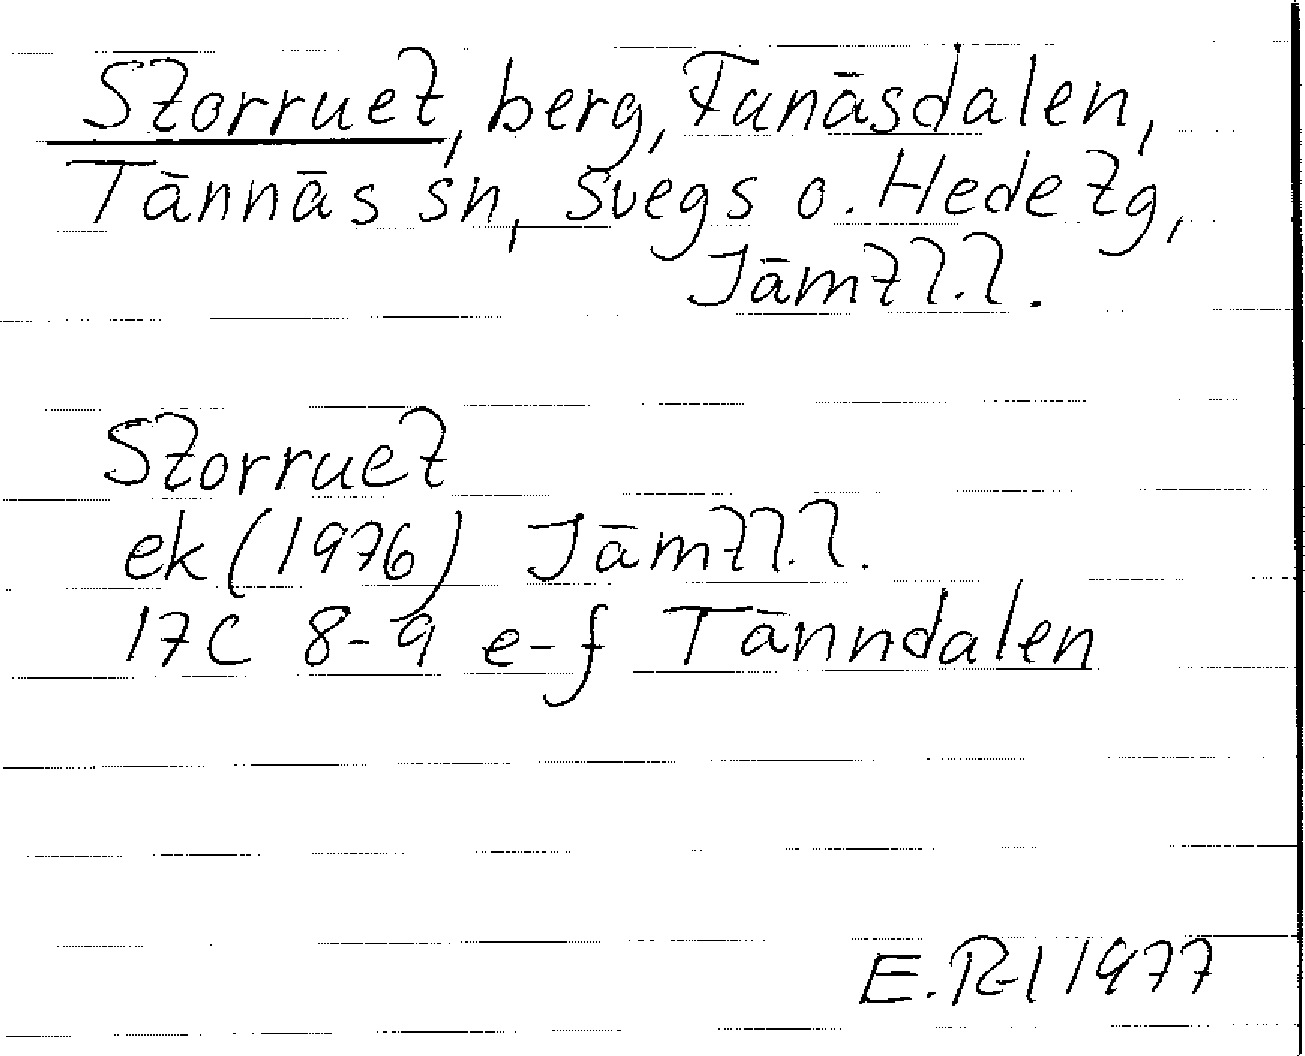 Storruet, berg, Funäsdalen,
Tännäs sn, Svegs o. Hede tg,
Jämtl.l.
Storruet
ek (1976) Jämtl.l.
17C 8-9 e-f Tänndalen
E. R-l 1977